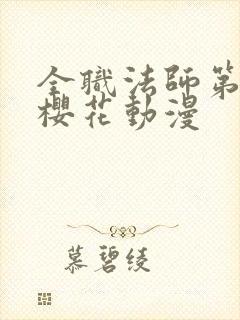 全職法師第
櫻花動漫
慕碧綾